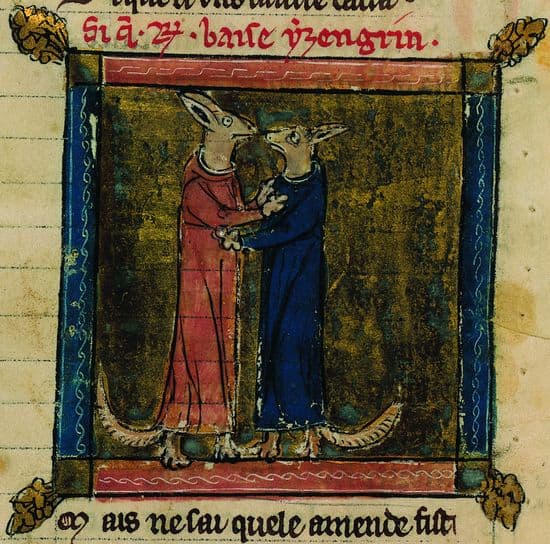 Si q̃ .R'. baise yzengrin.
M ais ne sai quele amende fist